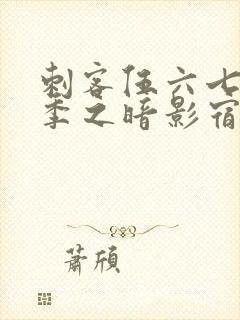 刺客伍六七
季之暗影宿
萧頎